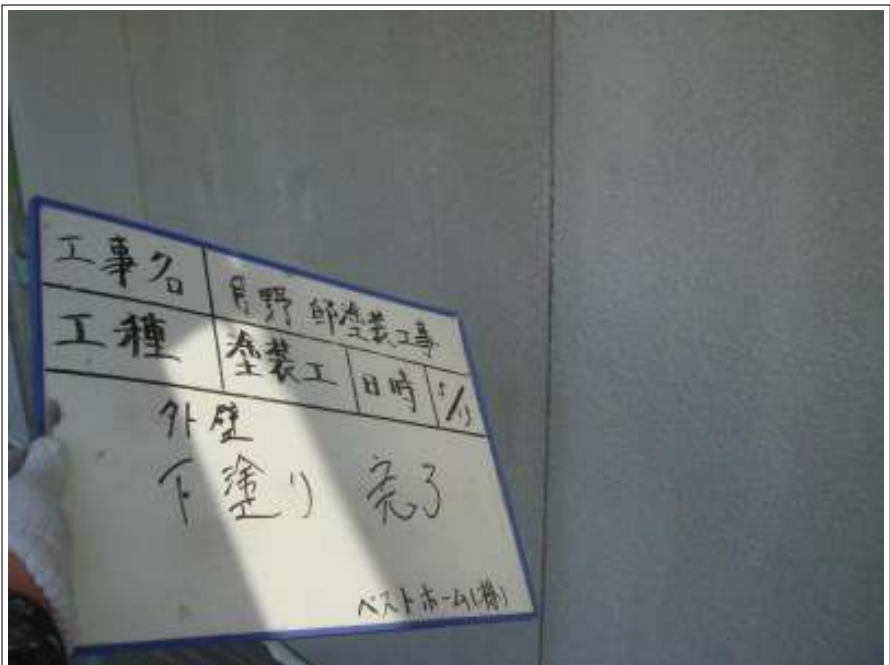 工事名 片野邸塗装工事
工種 塗装工 日時
外壁
下塗り 完了
ベストホーム(株)